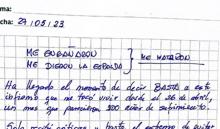 ma:
cha: 24/05/23
ME ENGAÑARON
ME DIERON LA ESPALDA
ME MATARON
Ha llegado el momento de decir BASTA a este
infierno que me tocó vivir desde el 26 de abril,
son mas que parecieron 200 años de sufrimiento.
Solo recibí críticas y hasta el extremo de